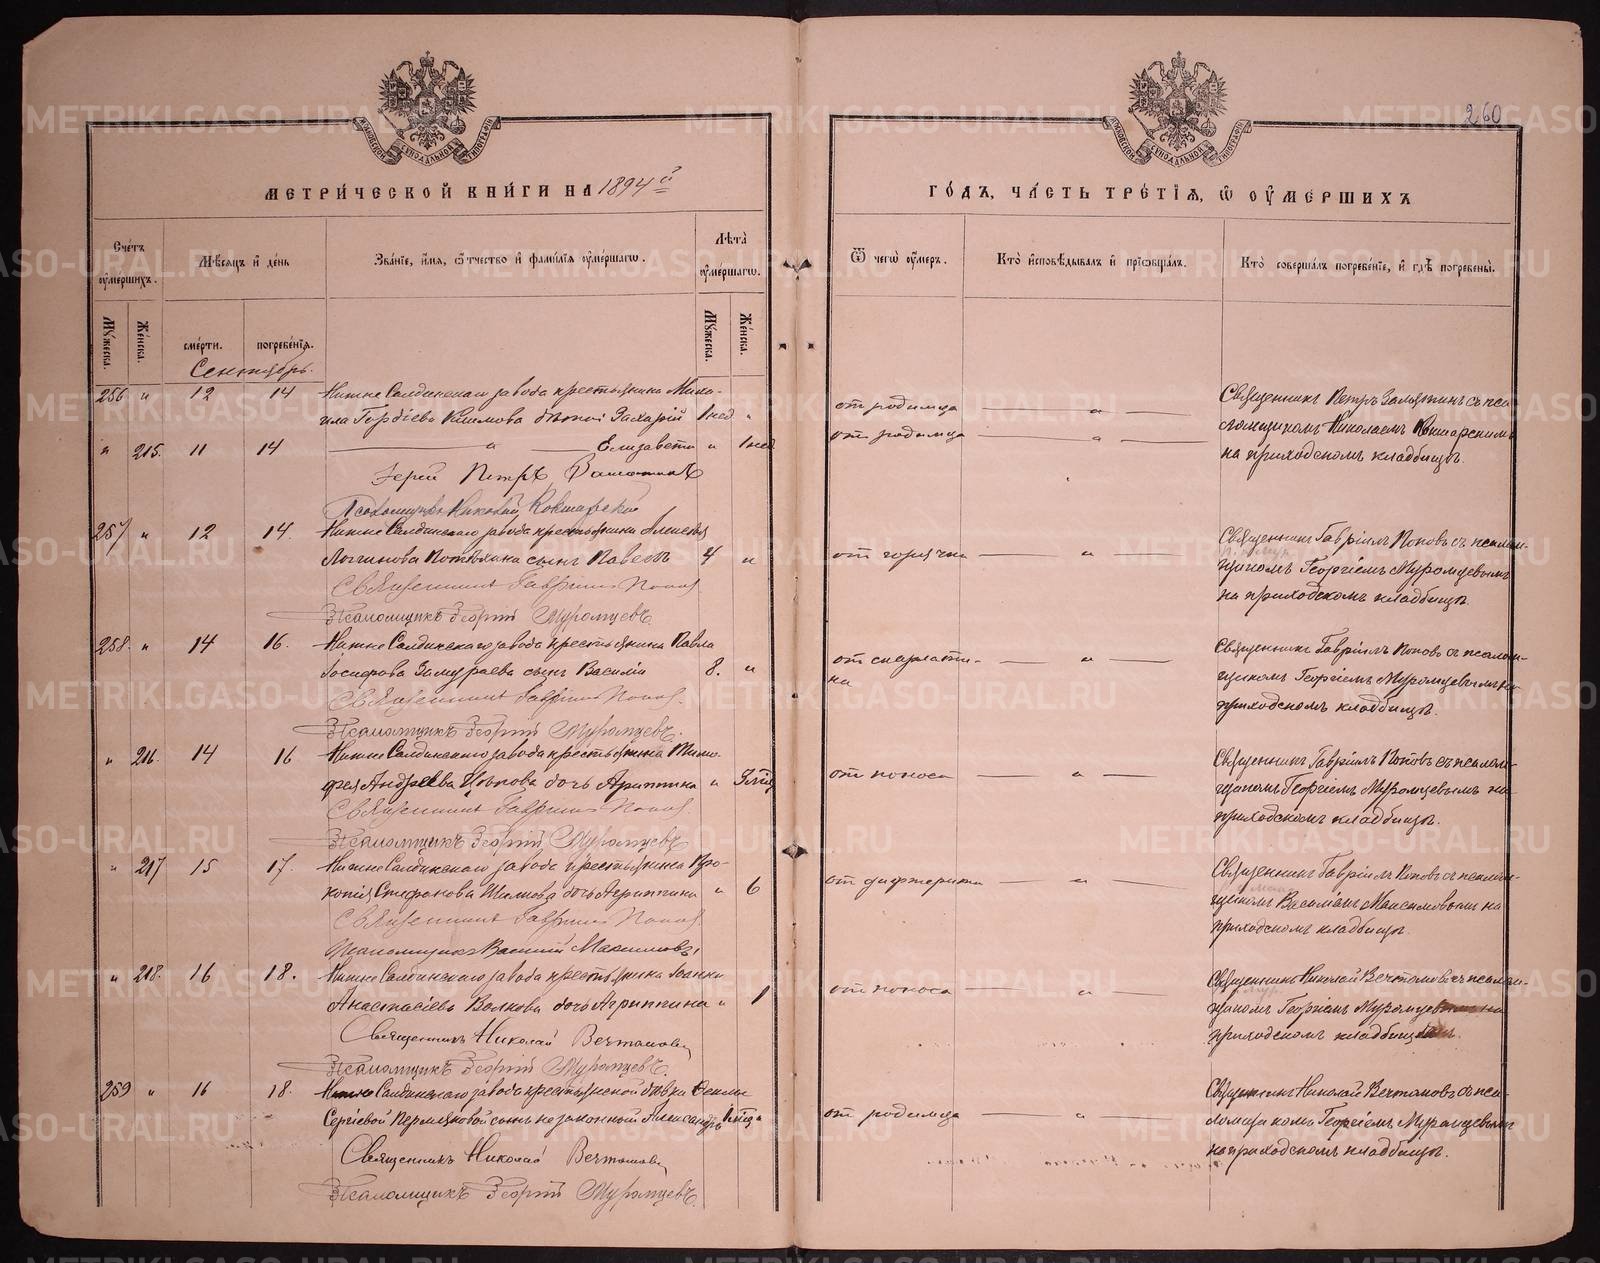 260
МЕТРИ́ЧЕСКОЙ КНИ́ГИ НА 1894 й
ГО́ДЪ, ЧА́СТЬ ТРЕ́ТІѦ, Ѽ ОУ҆МЕРШИХЪ
Сче́тъ оу҆ме́ршихъ.
Мѣ́сѧцъ и҆ де́нь
Зва́ніе, и҆́мѧ, ѻ҆́тчество и҆ фами́лїѧ оу҆ме́ршагѡ.
Лѣ́та оу҆ме́ршагѡ.
Ѿ чегѡ̀ оу҆́меръ.
Кто̀ и҆сповѣ́дывалъ и҆ прїѡбща́лъ.
Кто̀ соверша́лъ погребе́ніе, и҆ гдѣ̀ погребены̀.
Мꙋ́жеска.
Же́нска.
сме́рти.
погребе́нїѧ.
Мꙋ́жеска.
Же́нска.
Сентябрь.
256 " 12 14 Нижне Салдинскаго завода крестьянина Миха-
ила Гордѣева Климова дѣти: Захарій 1 нед "
от родимца — " —
Священникъ Петръ Замятинъ съ пса-
ломщикомъ Николаемъ Кокшарскимъ
на приходскомъ кладбищѣ.
" 215. 11 14 — " — Елизавета " 1 нед
от родимца — " —
Іерей Петръ Замятинъ
Псаломщикъ Николай Кокшарскій
257 " 12 14. Нижне Салдинскаго завода крестьянина Алексѣя
Логгинова Потѣхина сынъ Павелъ 4 "
от горячки — " —
Священникъ Гавріилъ Поповъ съ псалом-
щикомъ Георгіемъ Муромцевымъ
на приходскомъ кладбищѣ.
Священникъ Гавріилъ Поповъ
Псаломщикъ Георгій Муромцевъ.
258. " 14 16. Нижне Салдинскаго завода крестьянина Павла
Іосифова Замураева сынъ Василій 8. "
от скарлати-
на — " —
Священникъ Гавріилъ Поповъ съ псалом-
щикомъ Георгіемъ Муромцевымъ на
приходскомъ кладбищѣ.
Священникъ Гавріилъ Поповъ
Псаломщикъ Георгій Муромцевъ.
" 216. 14 16 Нижне Салдинскаго завода крестьянина Тимо-
фея Андреева дочь Агриппина "
от поноса — " —
Священникъ Гавріилъ Поповъ съ псалом-
щикомъ Георгіемъ Муромцевымъ на
приходскомъ кладбищѣ.
Священникъ Гавріилъ Поповъ
Псаломщикъ Георгій Муромцевъ
" 217 15 17. Нижне Салдинскаго завода крестьянина Про-
копія Стефанова дочь Агриппина " 6
от дифтерита — " —
Священникъ Гавріилъ Поповъ съ псалом-
щикомъ Василіемъ Максимовымъ на
приходскомъ кладбищѣ.
Священникъ Гавріилъ Поповъ
Псаломщикъ Василій Максимовъ,
" 218. 16 18. Нижне Салдинскаго завода крестьянина Іоанна
Анастасіева Волкова дочь Агриппина " 1
от поноса — " —
Священникъ Николай Вечтомовъ съ псалом-
щикомъ Георгіемъ Муромцевымъ на
приходскомъ кладбищѣ.
Священникъ Николай Вечтомовъ
Псаломщикъ Георгій Муромцевъ.
259 " 16 18. Нижне Салдинскаго завода крестьянской дѣвки
Сергіевой Пермяковой сынъ незаконный Александръ "
от родимца — "
Священникъ Николай Вечтомовъ съ пса-
ломщикомъ Георгіемъ Муромцевымъ
на приходскомъ кладбищѣ.
Священникъ Николай Вечтомовъ
Псаломщикъ Георгій Муромцевъ.
METRIKI.GASO-URAL.RU